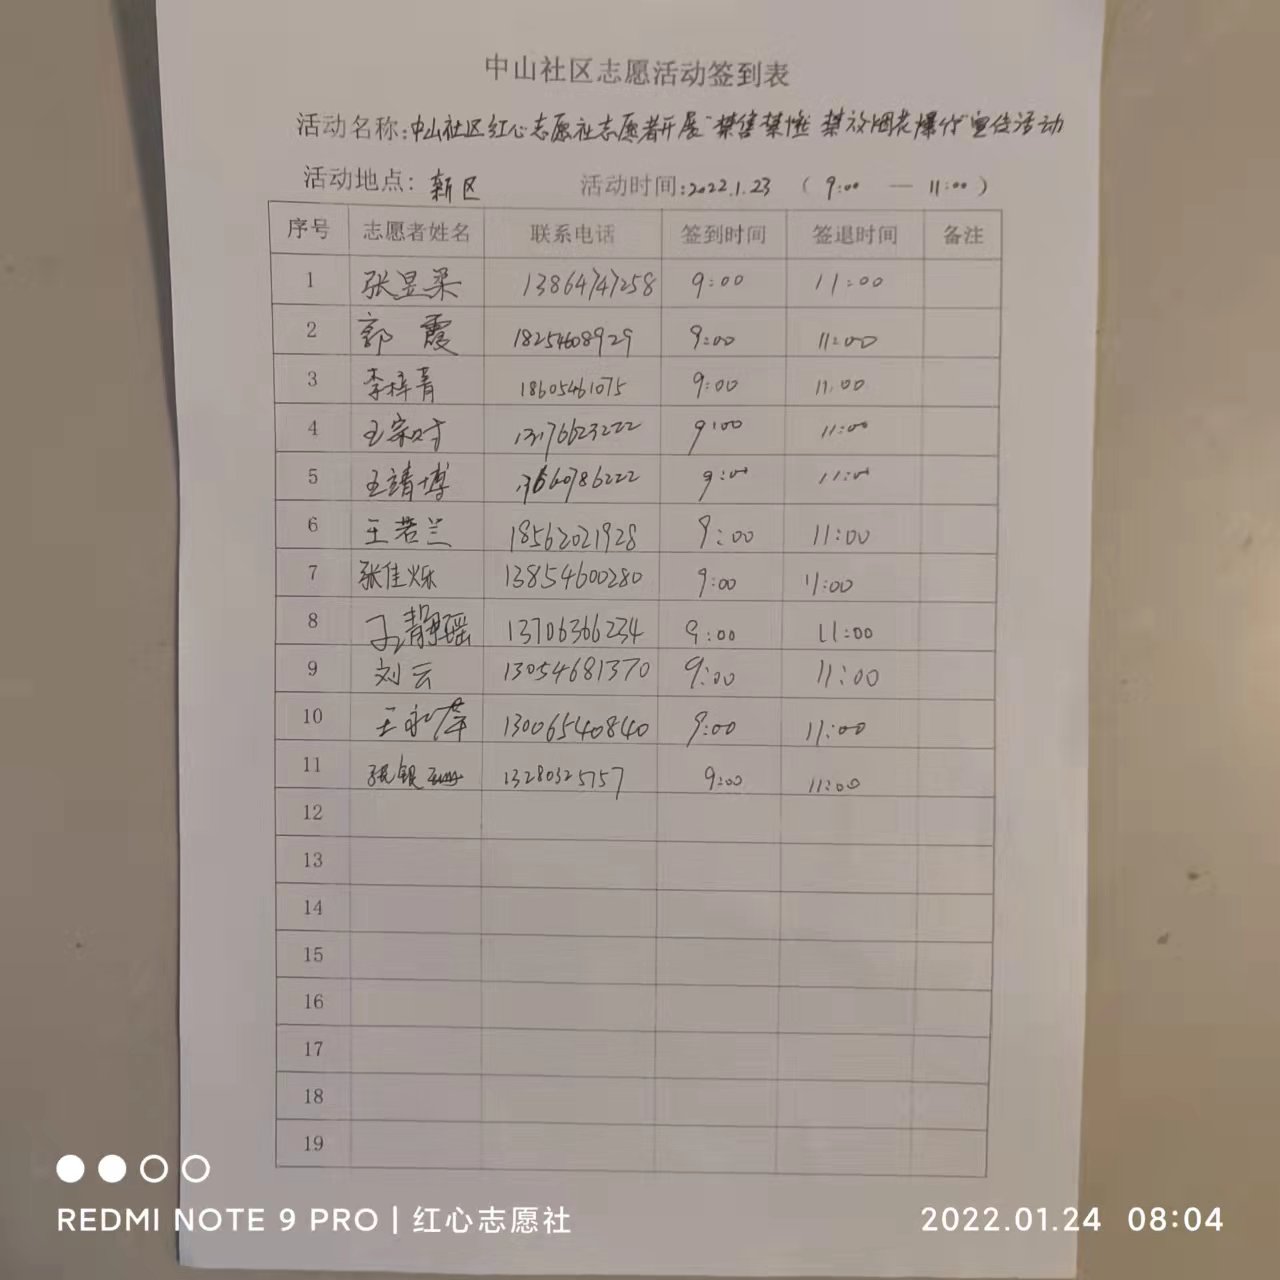 中山社区志愿活动签到表
活动名称:中山社区红心志愿社志愿者开展"禁售禁燃 禁放烟花爆竹"宣传活动
活动地点: 新区 活动时间:2022.1.23 ( 9:00 — 11:00 )
序号 志愿者姓名 联系电话 签到时间 签退时间 备注
1 张昱柔 13864747258 9:00 11:00
2 郭霞 18254608929 9:00 11:00
3 李梓菁 18605461075 9:00 11:00
4 王宗 13176623222 9:00 11:00
5 王靖博 9:00 11:00
6 王若兰 18562021928 9:00 11:00
7 张佳烁 13854600280 9:00 11:00
8 静瑶 13706366234 9:00 11:00
9 刘云 13054681370 9:00 11:00
10 王永萍 13006540840 9:00 11:00
11 张银 13280325757 9:00 11:00
12
13
14
15
16
17
18
19
REDMI NOTE 9 PRO | 红心志愿社
2022.01.24 08:04